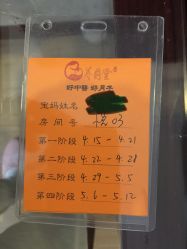 好中醫 好月子
宝妈姓名
房间号 03
第一阶段 4.15 - 4.21
第二阶段 4.22 - 4.28
第三阶段 4.29 - 5.5
第四阶段 5.6 - 5.12